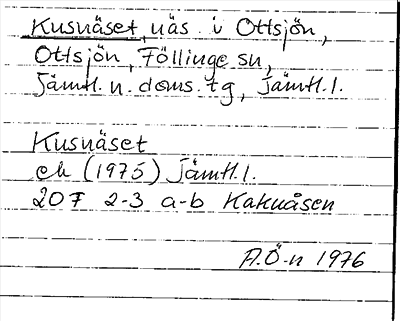 Kusnäset, näs i Ottsjön,
Ottsjön, Föllinge sn,
Jämtl. n. doms. tg, Jämtl. l.
Kusnäset
ek (1975) Jämtl. l.
20 F 2-3 a-b Kakuåsen
A.Ö-n 1976